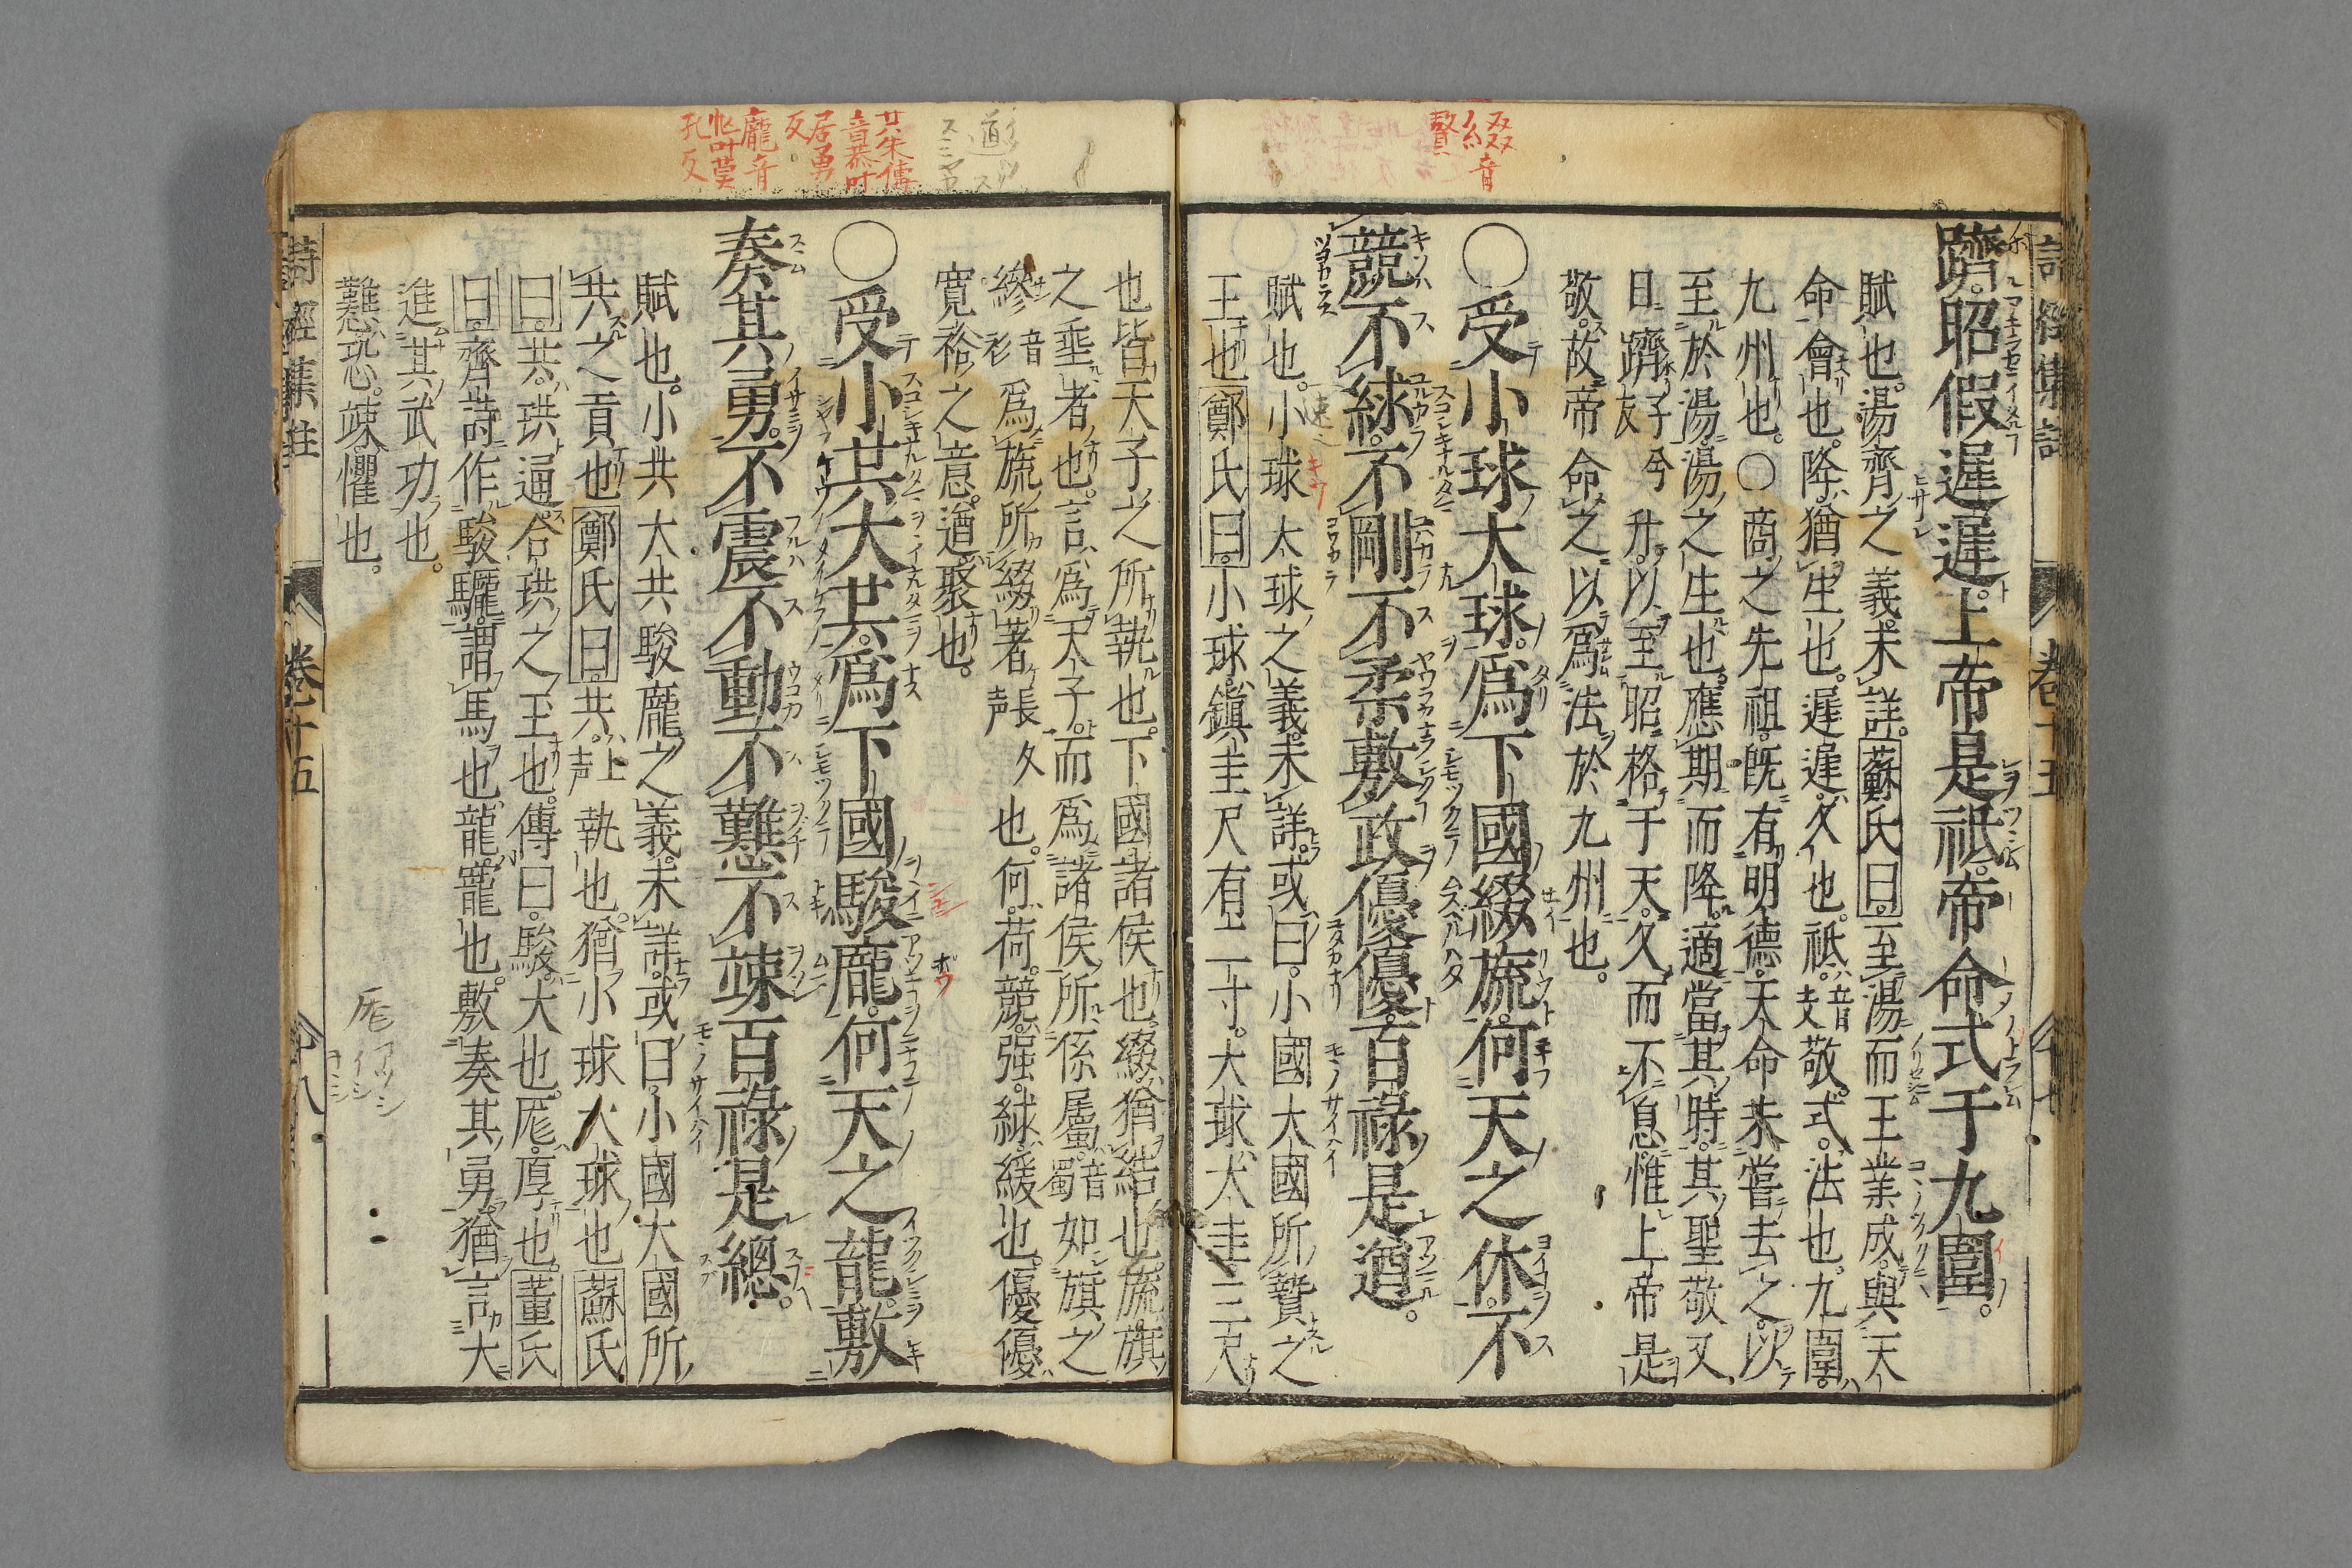 躋昭假遲遲上帝是祗帝命式于九圍。
賦也。湯齊之義未詳。蘇氏曰。至湯而王業成。與天
命會也。降。猶生也。遲遲。久也。祗。音支敬。式。法也。九圍。
九州也。○商之先祖。既有明德。天命未嘗去之。以
至於湯湯之生也。應期而降。適當其時。其聖敬又
日躋子兮友升。以至昭格于天。久而不息。惟上帝是
敬。故帝命之以爲法於九州也。
○受小球大球。爲下國綴旒。何天之休。不
競不絿。不剛不柔敷政優優。百祿是遒。
賦也。小球大球之義。未詳。或曰。小國大國所贄之
王也鄭氏曰。小球。鎮圭尺有二寸。大球。大圭三尺
也皆天子之所執也。下國諸侯也。綴。猶結也。旒。旗
之垂者也。言爲天子。而爲諸侯所係屬。音蜀如旗之
縿音衫爲旒所綴著長夂声也。何。荷。競。强。絿。緩也。優優
寬裕之意。遒。聚也。
○受小共大共。爲下國駿厖。何天之龍。敷
奏其勇。不震不動不戁不竦百祿是總。
賦也。小共大共駿厖之義。未詳。或曰。小國大國所
共之貢也鄭氏曰。共。上声執也。猶小球大球也蘇氏
曰。共。珙通。合珙之玉也。傳曰。駿。大也。厖。厚也。董氏
曰。齊詩作駿驪。謂馬也。龍。寵也。敷奏其勇。猶言大
進其武功也。
戁。恐。竦。懼也。
綴音
贅
共朱傳
音恭叶
居勇
反
厖音
忙叶莫
孔反
卷十五
詩經集註
卷十五